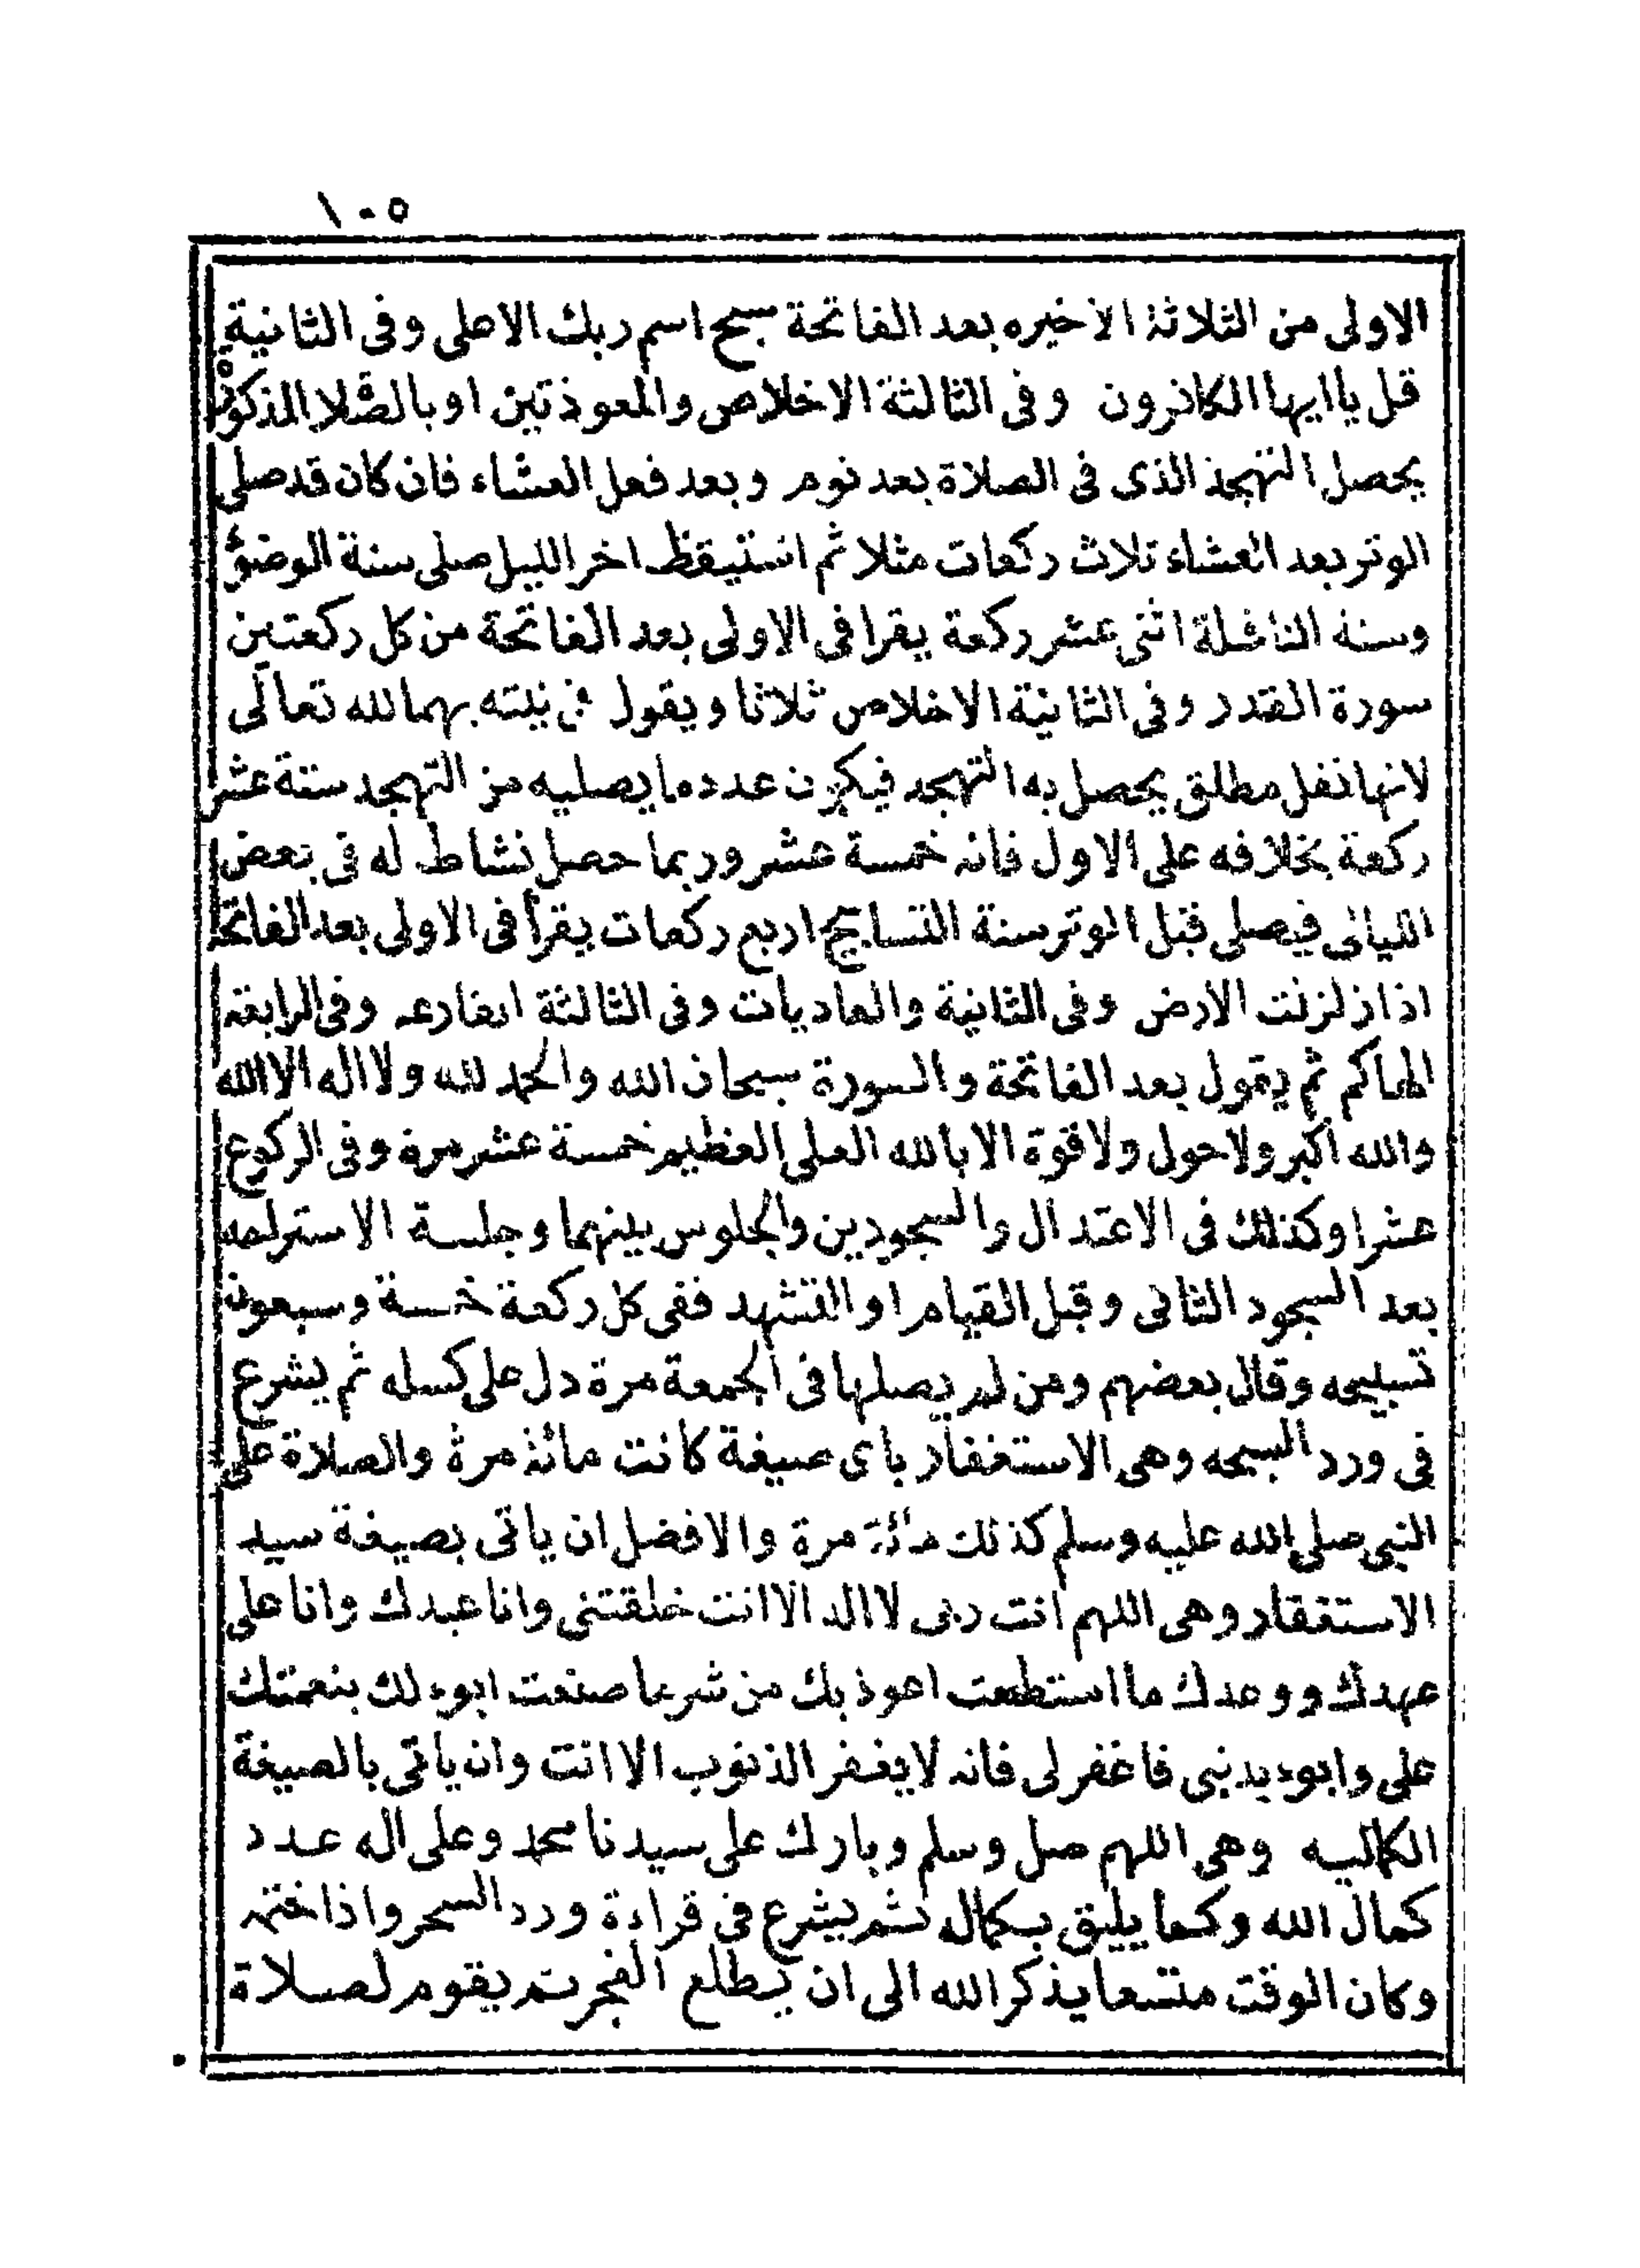 ١٠٥
الاولى من الثلاثة الاخيره بعد الفاتحة سبح اسم ربك الاعلى وفى الثانية
قل ياايها الكافرون وفى الثالثة الاخلاص والمعوذتين او بالصلا المذكورة
يحصل التهجد الذى فى الصلاة بعد نوم وبعد فعل العشاء فان كان قد صلى
الوتر بعد العشاء ثلاث ركعات مثلا ثم استيقظ اخر الليل صلى سنة الوضؤ
وسنة النافلة اثنى عشر ركعة يقرا فى الاولى بعد الفاتحة من كل ركعتين
سورة القدر وفى الثانية الاخلاص ثلاثا ويقول فى نيته بهما لله تعالى
لانها نفل مطلق يحصل به التهجد فيكون عدد ما يصليه من التهجد ستة عشر
ركعة بخلافه على الاول فانه خمسة عشر وربما حصل نشاط له فى بعض
الليالى فيصلى قبل الوتر سنة التسابيح اربع ركعات يقرأ فى الاولى بعد الفاتحة
اذا زلزلت الارض وفى الثانية والعاديات وفى الثالثة القارعه وفى الرابعة
الهاكم ثم يقول بعد الفاتحة والسورة سبحان الله والحمد لله ولا اله الا الله
والله اكبر ولا حول ولا قوة الا بالله العلى العظيم خمسة عشر مرة وفى الركوع
عشرا وكذلك فى الاعتدال والسجودين والجلوس بينهما وجلسة الاستراحه
بعد السجود الثانى وقبل القيام او التشهد ففى كل ركعة خمسة وسبعون
تسبيحه وقال بعضهم ومن لم يصلها فى الجمعة مرة دل على كسله ثم يشرع
فى ورد السبحه وهى الاستغفار باى صيغة كانت مائة مرة والصلاة على
النبى صلى الله عليه وسلم كذلك مائة مرة والافضل ان ياتى بصيغة سيد
الاستغفار وهى اللهم انت ربى لا اله الا انت خلقتنى وانا عبدك وانا على
عهدك ووعدك ما استطعت اعوذ بك من شر ما صنعت ابوء لك بنعمتك
على وابوء بذنبى فاغفر لى فانه لا يغفر الذنوب الا انت وان ياتى بالصيغة
الكماليه وهى اللهم صل وسلم وبارك على سيدنا محمد وعلى اله عدد
كمال الله وكما يليق بكماله ثم يشرع فى قراءة ورد السحر واذا ختمه
وكان الوقت متسعا يذكر الله الى ان يطلع الفجر ثم يقوم لصلاة